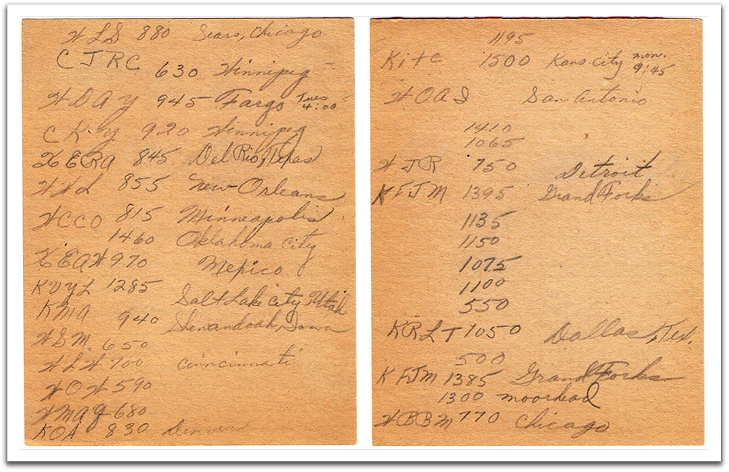 WLS 880 Sears, Chicago
CJRC 630 Winnipeg
WDAY 945 Fargo Tues 4:00
CKY 920 Winnipeg
XERA 845 Del Rio, Texas
WWL 855 New Orleans
WCCO 815 Minneapolis
1460 Oklahoma City
XEAW 970 Mexico
KDYL 1285 Salt Lake City, Utah
KMA 940 Shenandoah, Iowa
WSM. 650
WLW 700 Cincinnati
WOW 590
WMAQ 680
KOA 830 Denver
1195
Kite 1500 Kans. City mon. 9:45
WOAI San Antonio
1410
1065
WJR 750 Detroit
KFJM 1395 Grand Forks
1135
1150
1075
1100
550
KRLT 1050 Dallas, Tex.
500
KFJM 1385 Grand Forks
1300 moorhead
WBBM 770 Chicago